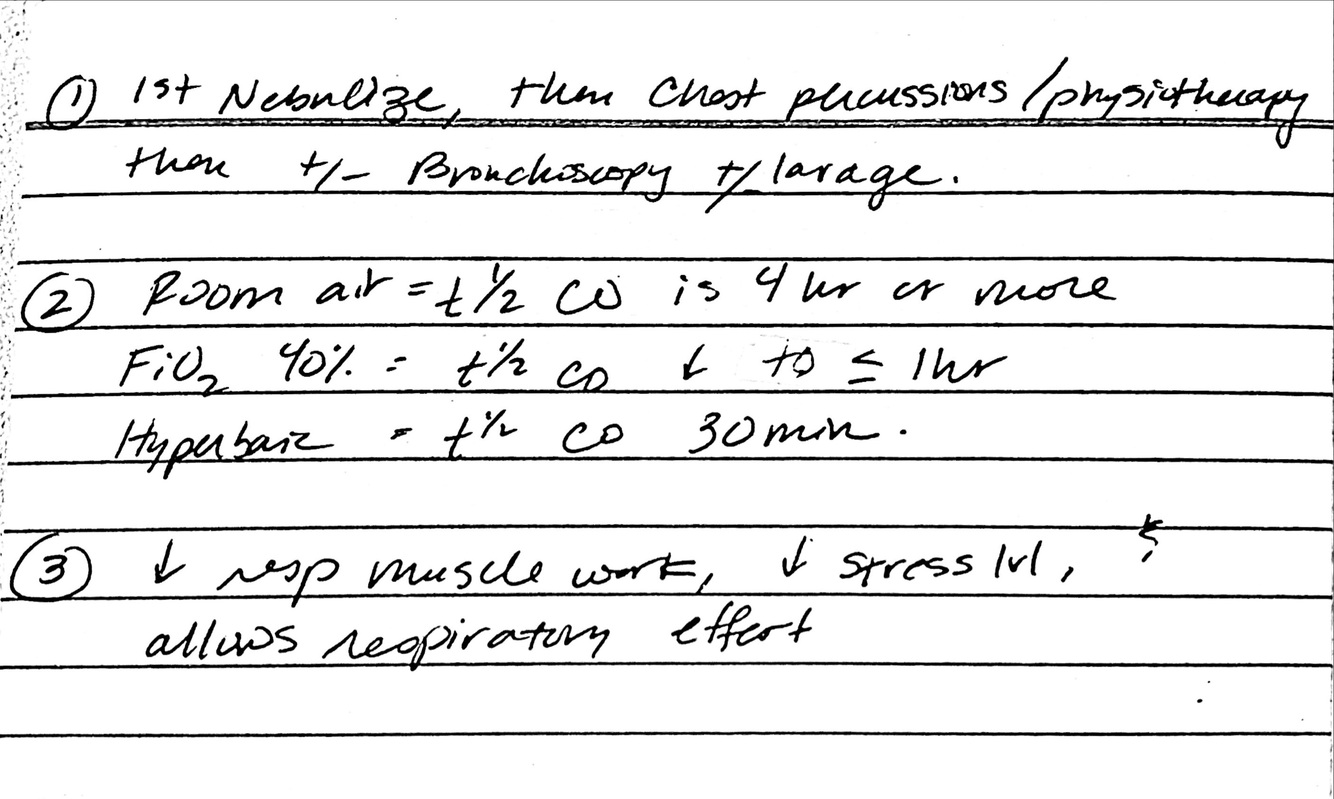 ① 1st Nebulize, then Chest percussions/physiotherapy
then +/- Bronchoscopy +/- lavage.
② Room air = t½ CO is 4 hr or more
FiO₂ 40% = t½ CO ↓ to ≤ 1hr
Hyperbaric = t½ CO 30 min.
③ ↓ resp muscle work, ↓ stress lvl, &
allows respiratory effort